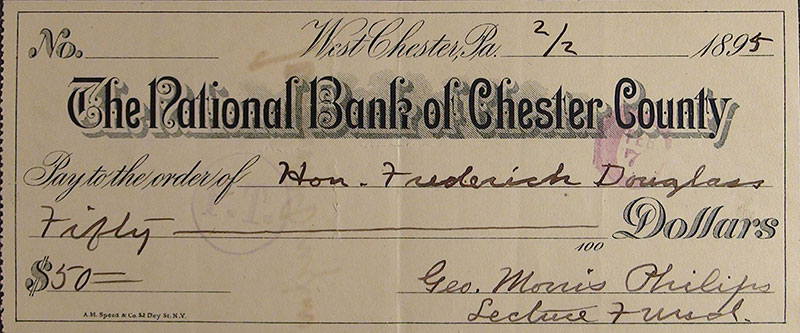 No. West Chester, Pa. 2/2 1895
The National Bank of Chester County
Pay to the order of Hon. Frederick Douglass
Fifty 100 Dollars
$50= Geo. Morris Philips
Lecture Fund.
A.M. Speed & Co. 52 Dey St. N.Y.